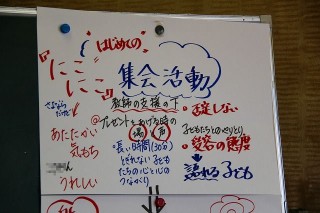 はじめての
にこにこ
集会活動
教師の支援の下
@プレゼントをあげる時の
場 声
・長い時間(30分)
とぎれない子ども
たちの心と心の
つながり
あたたかい
気もち
うれしい
・否定しない
子どもたちとのやりとり
・受容の態度
語れる子ども